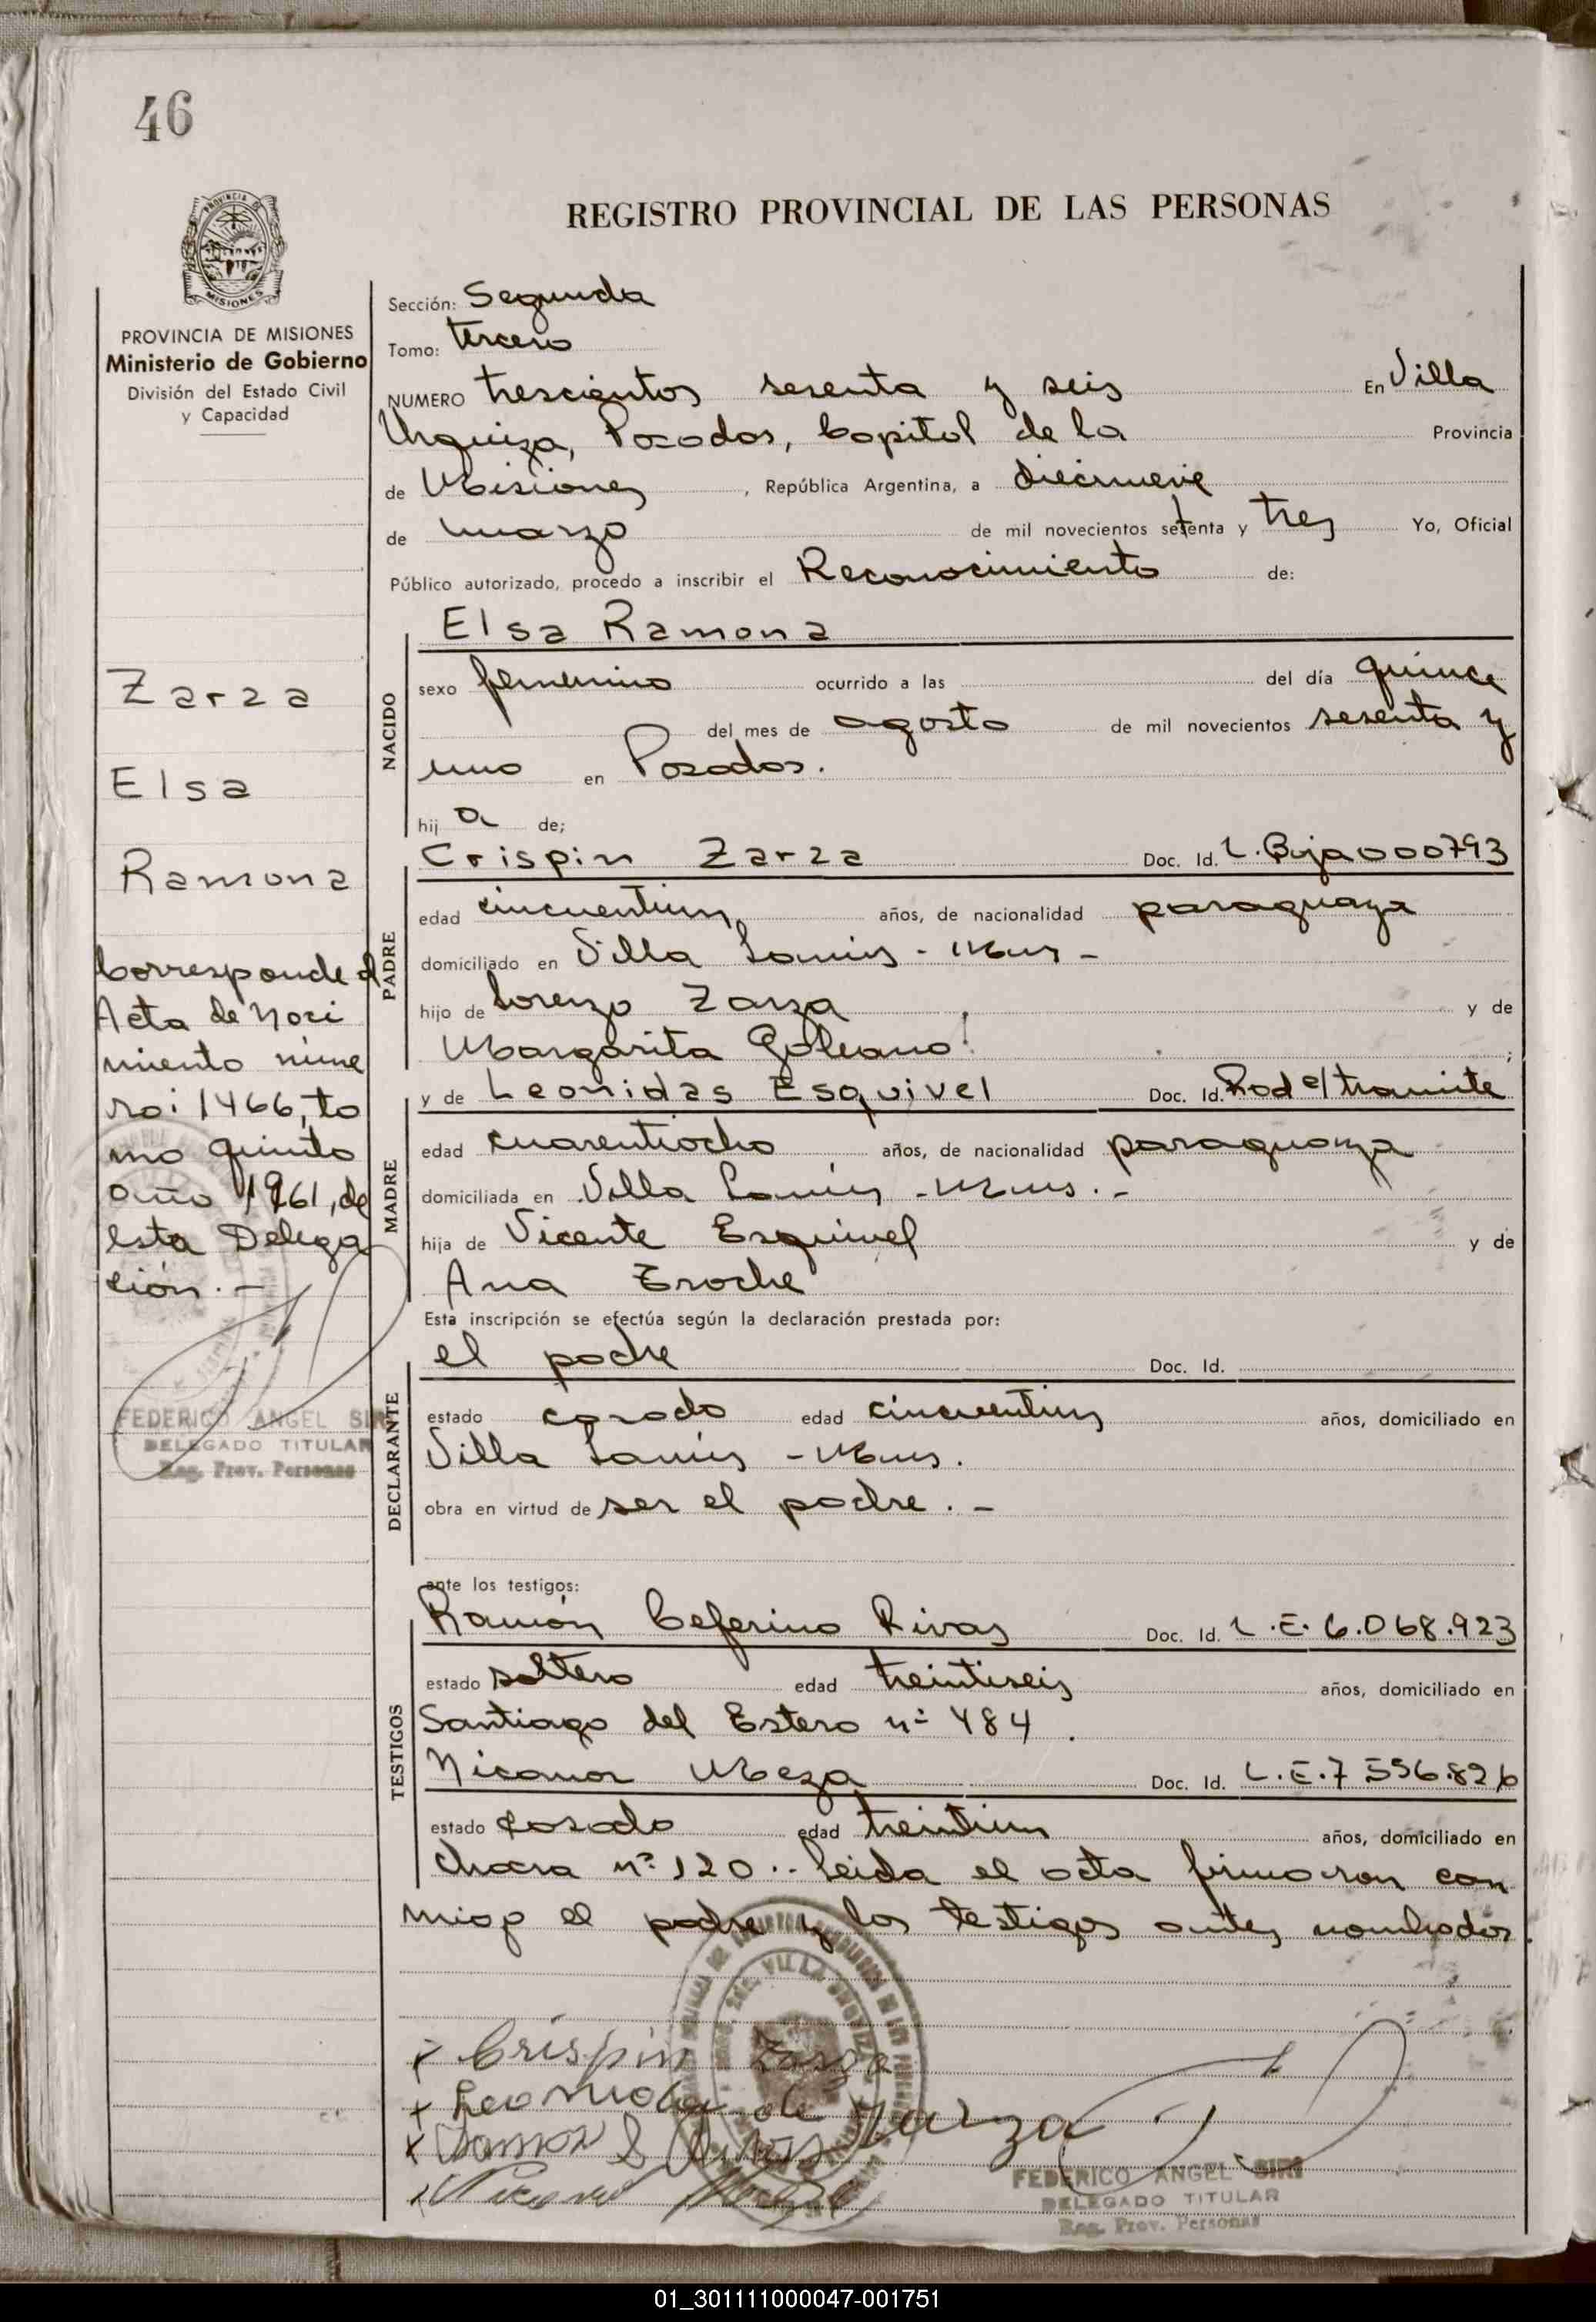 46
PROVINCIA DE MISIONES
REGISTRO PROVINCIAL DE LAS PERSONAS
PROVINCIA DE MISIONES
Ministerio de Gobierno
División del Estado Civil
y Capacidad
Sección: Segunda
Tomo: tercero
NUMERO trescientos sesenta y seis En Villa
Urquiza, Posadas, Capital de la Provincia
de Misiones, República Argentina, a diecinueve
de marzo de mil novecientos setenta y tres Yo, Oficial
Público autorizado, procedo a inscribir el Reconocimiento de:
NACIDO
Elsa Ramona
sexo femenino ocurrido a las del día quince
del mes de agosto de mil novecientos sesenta y
uno en Posadas.
hij a de;
Zarza
Elsa
Ramona
Corresponde al
Acta de Naci
miento núme
ro: 1466, to
mo quinto
año 1961, de
esta Delega
ción.-
FEDERICO ANGEL SIRI
DELEGADO TITULAR
Reg. Prov. Personas
PADRE
Crispin Zarza Doc. Id. L. Bja 000793
edad cincuentiun años, de nacionalidad paraguaya
domiciliado en Villa Lanús - Mnes -
hijo de Lorenzo Zarza y de
Margarita Galeano ;
MADRE
y de Leonidas Esquivel Doc. Id. Rad e/tramite
edad cuarentiocho años, de nacionalidad paraguaya
domiciliada en Villa Lanús - Mnes. -
hija de Vicente Esquivel y de
Ana Troche
Esta inscripción se efectúa según la declaración prestada por:
DECLARANTE
el padre Doc. Id.
estado casado edad cincuentiun años, domiciliado en
Villa Lanús - Mnes.
obra en virtud de ser el padre. -
ante los testigos:
TESTIGOS
Ramón Ceferino Rivas Doc. Id. L.E. 6.068.923
estado soltero edad treintiseis años, domiciliado en
Santiago del Estero nº 484.
Nicanor Meza Doc. Id. L.E. 7 556.826
estado casado edad treintiun años, domiciliado en
chacra nº 120.- Leida el acta firmaron con
migo el padre y los testigos antes nombrados.
x Crispin Zarza
x Leonidas de Zarza
x Ramon C Rivas
x Nicanor Meza
FEDERICO ANGEL SIRI
DELEGADO TITULAR
Reg. Prov. Personas
01_301111000047-001751